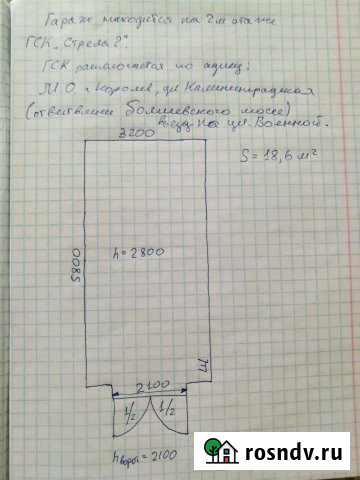 Гараж находится на 2м этаже
ГСК "Стрела 2".
ГСК располагается по адресу:
М.О. г. Королев, ул. Калининградская
(ответвление Болшевского шоссе)
въезд на ул. Военной.
3200
S = 18,6 м²
5800
h = 2800
2100
1/2 1/2
h ворот = 2100
rosndv.ru